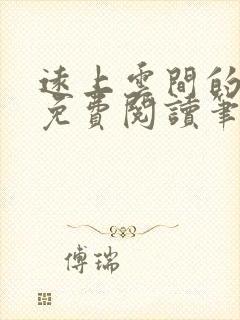 遠上雲間的
免費閱讀筆
傅瑞